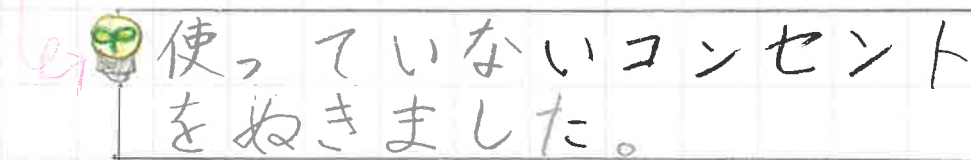 使っていないコンセント
をぬきました。